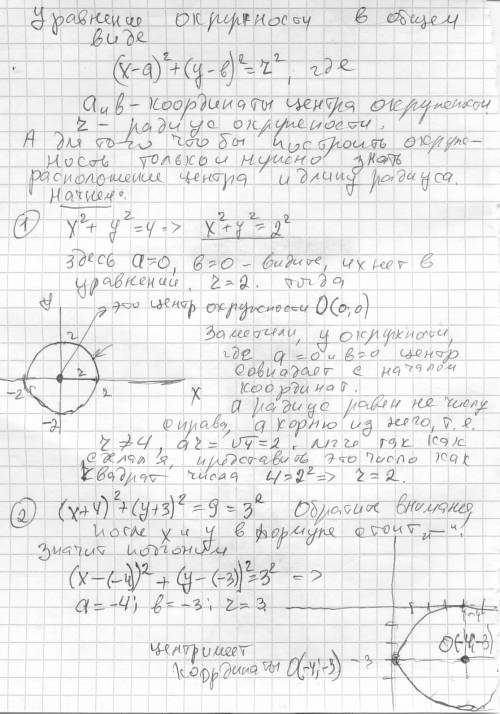 Уравнение окружности в общем
виде
(x-a)²+(y-в)²=r², где
a и в - координаты центра окружености
r - радиус окружености.
А для того что бы построить окруж-
ность только и нужно знать
расположение центра и длину радиуса.
Начнем.
① x²+y²=4 => x²+y²=2²
здесь a=0, в=0 - видите, их нет в
уравнении. r=2. тогда
y это центр окружности O(0;0)
Заметили, у окружности,
r где a=0 и в=0 центр
совпадает с началом
-2 r 2 x координат.
а радиус равен не числу
-2 справа, а корню из него, т.е.
r≠4, а r=√4=2. легче так как
сделал я, представить это число как
квадрат числа 4=2² => r=2.
② (x+4)²+(y+3)²=9=3² Обратите внимание
после x и y в формуле стоит „—".
Значит подгоним
(x-(-4))²+(y-(-3))²=3² =>
a=-4; в=-3; r=3 -4
O(-4;-3)
центр имеет
координаты O(-4;-3) -3